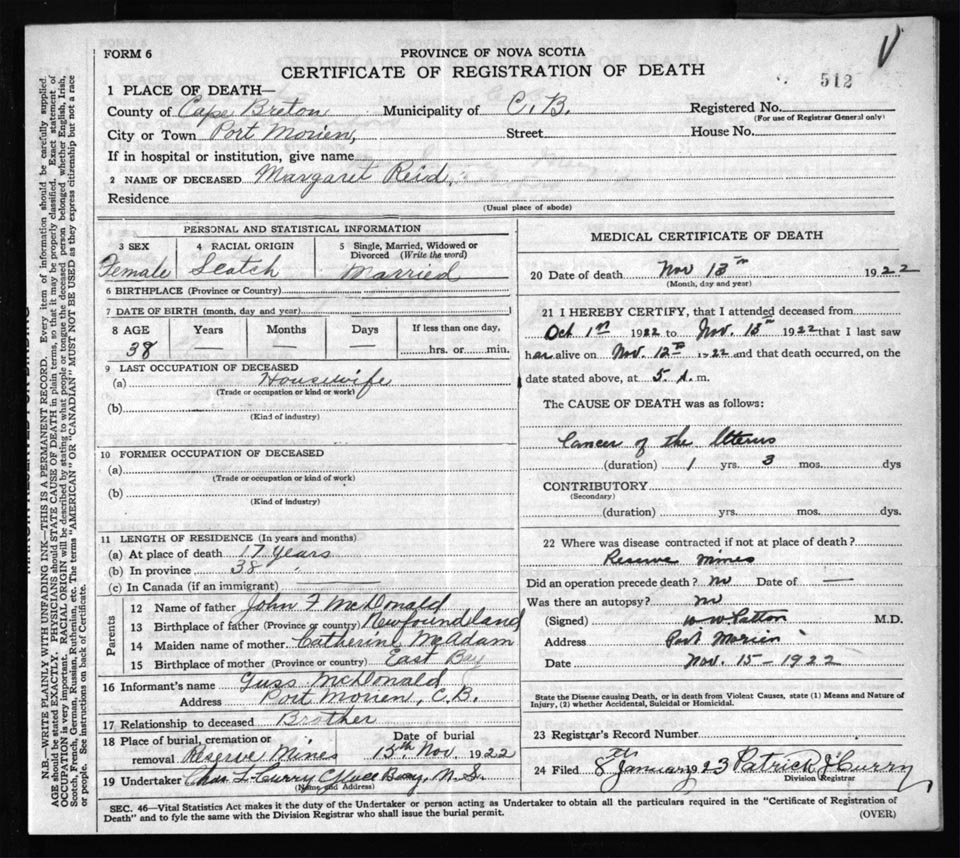 FORM 6
PROVINCE OF NOVA SCOTIA
CERTIFICATE OF REGISTRATION OF DEATH
512
1 PLACE OF DEATH—
County of Cape Breton Municipality of C.B. Registered No.
(For use of Registrar General only)
City or Town Port Morien, Street House No.
If in hospital or institution, give name
2 NAME OF DECEASED Margaret Reid.
Residence
(Usual place of abode)
PERSONAL AND STATISTICAL INFORMATION
3 SEX 4 RACIAL ORIGIN 5 Single, Married, Widowed or Divorced (Write the word)
Female Scotch Married
6 BIRTHPLACE (Province or Country)
7 DATE OF BIRTH (month, day and year)
8 AGE Years Months Days If less than one day,
38 — — — hrs. or min.
9 LAST OCCUPATION OF DECEASED
(a) Housewife
(Trade or occupation or kind or work)
(b)
(Kind of industry)
10 FORMER OCCUPATION OF DECEASED
(a)
(Trade or occupation or kind of work)
(b)
(Kind of industry)
11 LENGTH OF RESIDENCE (In years and months)
(a) At place of death 17 years
(b) In province 38 "
(c) In Canada (if an immigrant)
Parents
12 Name of father John F McDonald
13 Birthplace of father (Province or country) Newfoundland
14 Maiden name of mother Catherine McAdam
15 Birthplace of mother (Province or country) East Bay
16 Informant's name Guss McDonald
Address Port Morien, C.B.
17 Relationship to deceased Brother
18 Place of burial, cremation or Date of burial
removal Reserve Mines 15th Nov. 1922
19 Undertaker Chas. F Curry Glace Bay, N.S.
(Name and Address)
MEDICAL CERTIFICATE OF DEATH
20 Date of death Nov 13th 1922
(Month, day and year)
21 I HEREBY CERTIFY, that I attended deceased from
Oct 1st 1922 to Nov. 13th 1922 that I last saw
her alive on Nov. 12th 1922 and that death occurred, on the
date stated above, at 5. A. m.
The CAUSE OF DEATH was as follows:
Cancer of the Uterus
(duration) 1 yrs. 3 mos. dys
CONTRIBUTORY
(Secondary)
(duration) yrs. mos. dys.
22 Where was disease contracted if not at place of death?
Reserve Mines
Did an operation precede death? No Date of —
Was there an autopsy? No
(Signed) W W Patton M.D.
Address Port Morien
Date Nov. 15 - 1922
State the Disease causing Death, or in death from Violent Causes, state (1) Means and Nature of
Injury, (2) whether Accidental, Suicidal or Homicidal.
23 Registrar's Record Number
24 Filed 8th January 1923 Patrick J Curry
Division Registrar
SEC. 46—Vital Statistics Act makes it the duty of the Undertaker or person acting as Undertaker to obtain all the particulars required in the "Certificate of Registration of
Death" and to fyle the same with the Division Registrar who shall issue the burial permit.
(OVER)
N.B.—WRITE PLAINLY WITH UNFADING INK—THIS IS A PERMANENT RECORD. Every item of information should be carefully supplied.
AGE should be stated EXACTLY. PHYSICIANS should STATE CAUSE OF DEATH in plain terms, so that it may be properly classified. Exact statement of
OCCUPATION is very important. RACIAL ORIGIN will be described by stating to what people or tongue the deceased person belonged whether English, Irish,
Scotch, French, German, Russian, Ruthenian, etc. The terms "AMERICAN" OR "CANADIAN" MUST NOT BE USED as they express citizenship but not a race
or people. See instructions on back of Certificate.